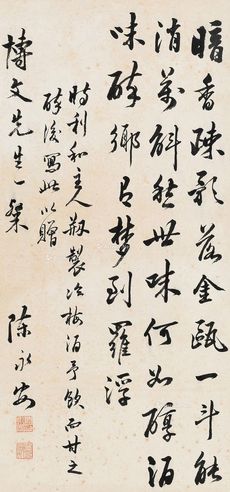 暗香疎影落金甌一斗能
消萬斛愁世味何如醇酒
味醉鄉梦到羅浮
時利和主人製冷梅酒予飲而甘之
醉後寫此以贈
博文先生一粲
陳永安